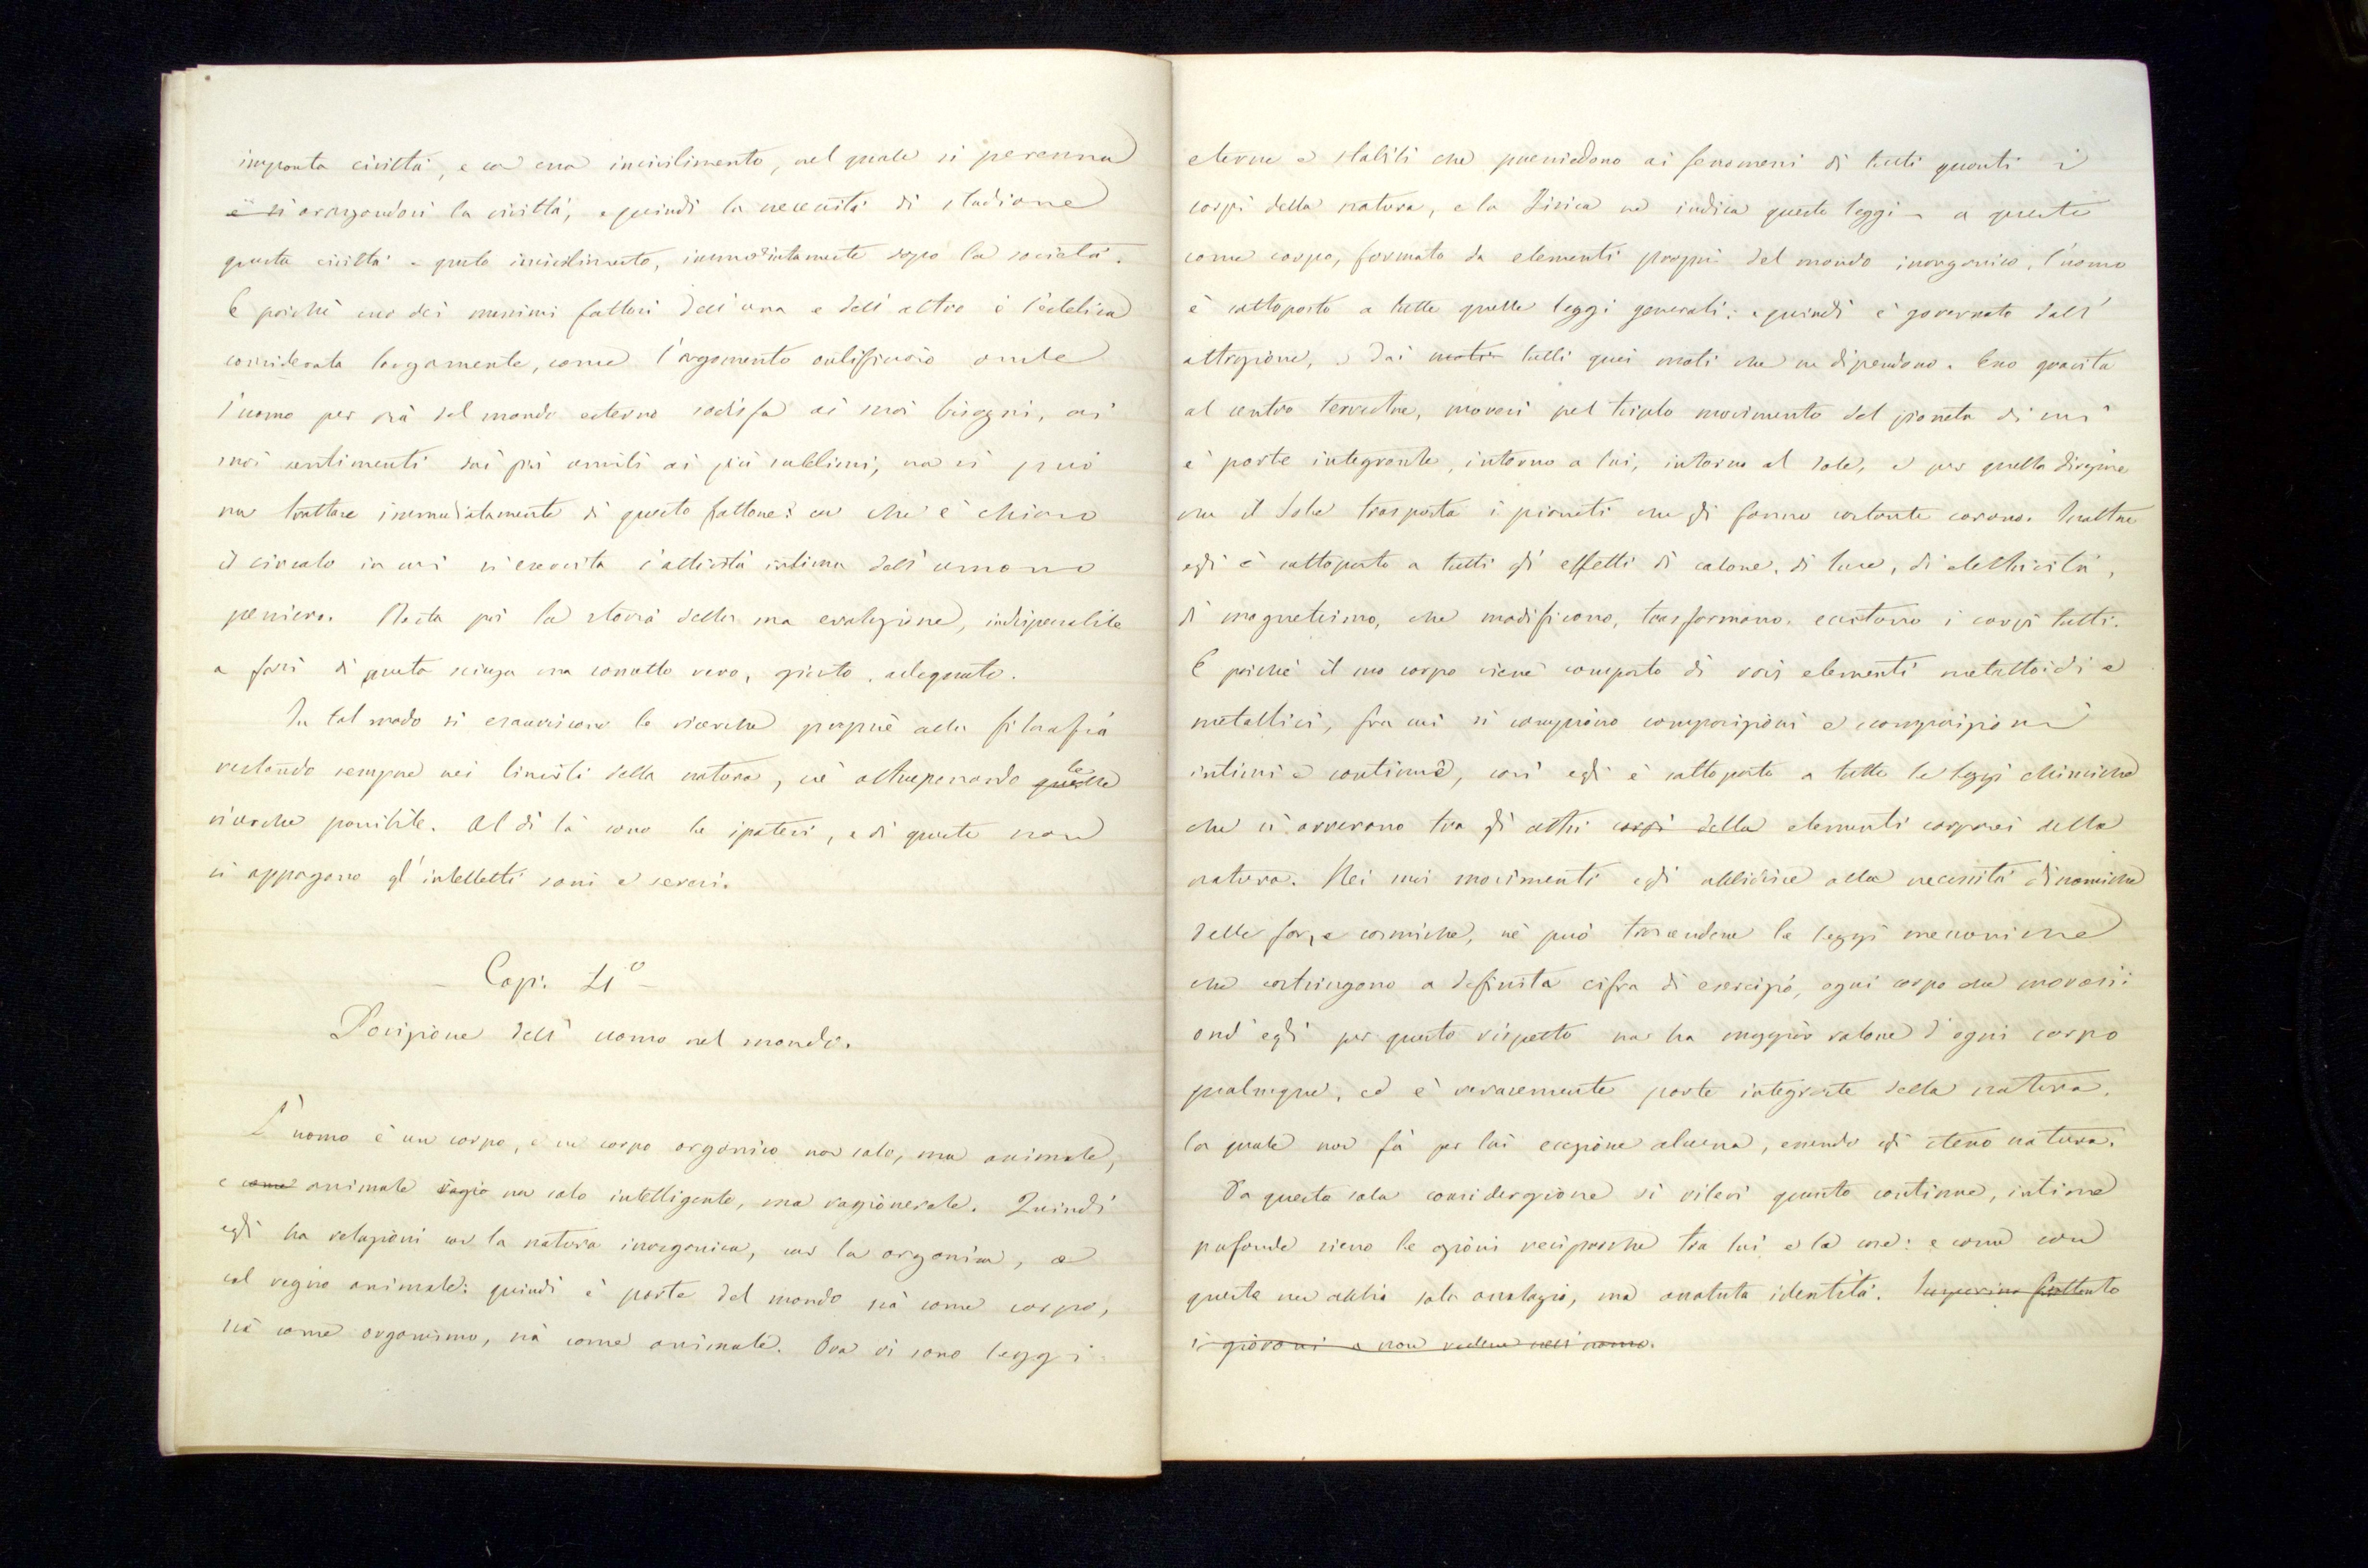 impronta civiltà, e con essa incivilimento, nel quale si perenna
e si organandosi la civiltà, e quindi la necessità di studiare
questa civiltà e questo incivilimento, immediatamente dopo la società.
E poichè uno dei massimi fattori dell'una e dell'altro è l'estetica
considerata largamente, come l'argomento onde
l'uomo per via del mondo esterno sodisfa ai suoi bisogni, ai
suoi sentimenti dai più umili ai più sublimi, non si può
non trattare immediatamente di questo fattore: con che è chiuso
il circolo in cui si esercita l'attività intima dell'umano
pensiero. Resta poi la storia della sua evoluzione, indispensabile
a farsi di questa scienza un concetto vero, giusto, adeguato.
In tal modo si esauriscono le ricerche proprie alla filosofia
restando sempre nei limiti della natura, nè oltrepassando quelle le
ricerche possibili. Al di là sono le ipotesi, e di queste non
si appagano gl'intelletti sani e severi.
- Cap. II° -
Posizione dell'uomo nel mondo.
L'uomo è un corpo, e un corpo organico non solo, ma animale,
e come animale ragio non solo intelligente, ma ragionevole. Quindi
egli ha relazioni con la natura inorganica, con la organica, e
col regno animale: quindi è parte del mondo sia come corpo,
sia come organismo, sia come animale. Ora vi sono leggi
eterne e stabili che presiedono ai fenomeni di tutti quanti i
corpi della natura, e la Fisica ne indica queste leggi - a queste
come corpo, formato da elementi proprii del mondo inorganico, l'uomo
è sottoposto a tutte quelle leggi generali: e quindi è governato dall'
attrazione, e dai moti tutti quei moti che ne dipendono. Esso gravita
al centro terrestre, movesi pel triplo movimento del pianeta di cui
è parte integrante, intorno a lui, intorno al sole, e per quella direzione
che il Sole trasporta i pianeti che gli fanno costante corona. Inoltre
egli è sottoposto a tutti gli effetti di calore, di luce, di elettricità,
di magnetismo, che modificano, trasformano, eccitano i corpi tutti.
E poichè il suo corpo viene composto di varii elementi metalloidi e
metallici, fra cui si compiono composizioni e scomposizioni
intime e continue, così egli è sottoposto a tutte le leggi chimiche
che si avverano tra gli altri corpi della elementi corporei della
natura. Nei suoi movimenti egli ubbidisce alla necessità dinamiche
delle forze cosmiche, nè può trascendere le leggi meccaniche
che costringono a definita cifra di esercizio, ogni corpo che movasi:
ond'egli per questo rispetto non ha maggior valore d'ogni corpo
qualunque, ed è veracemente parte integrante della natura,
la quale non fà per lui eccezione alcuna, essendo egli stesso natura.
Da questa sola considerazione si rilevi quanto continue, intime
profonde sieno le azioni reciproche tra lui e le cose: e come con
queste non abbia sola analogia, ma assoluta identità. frattanto
i giovani a non vedere nell'uomo.